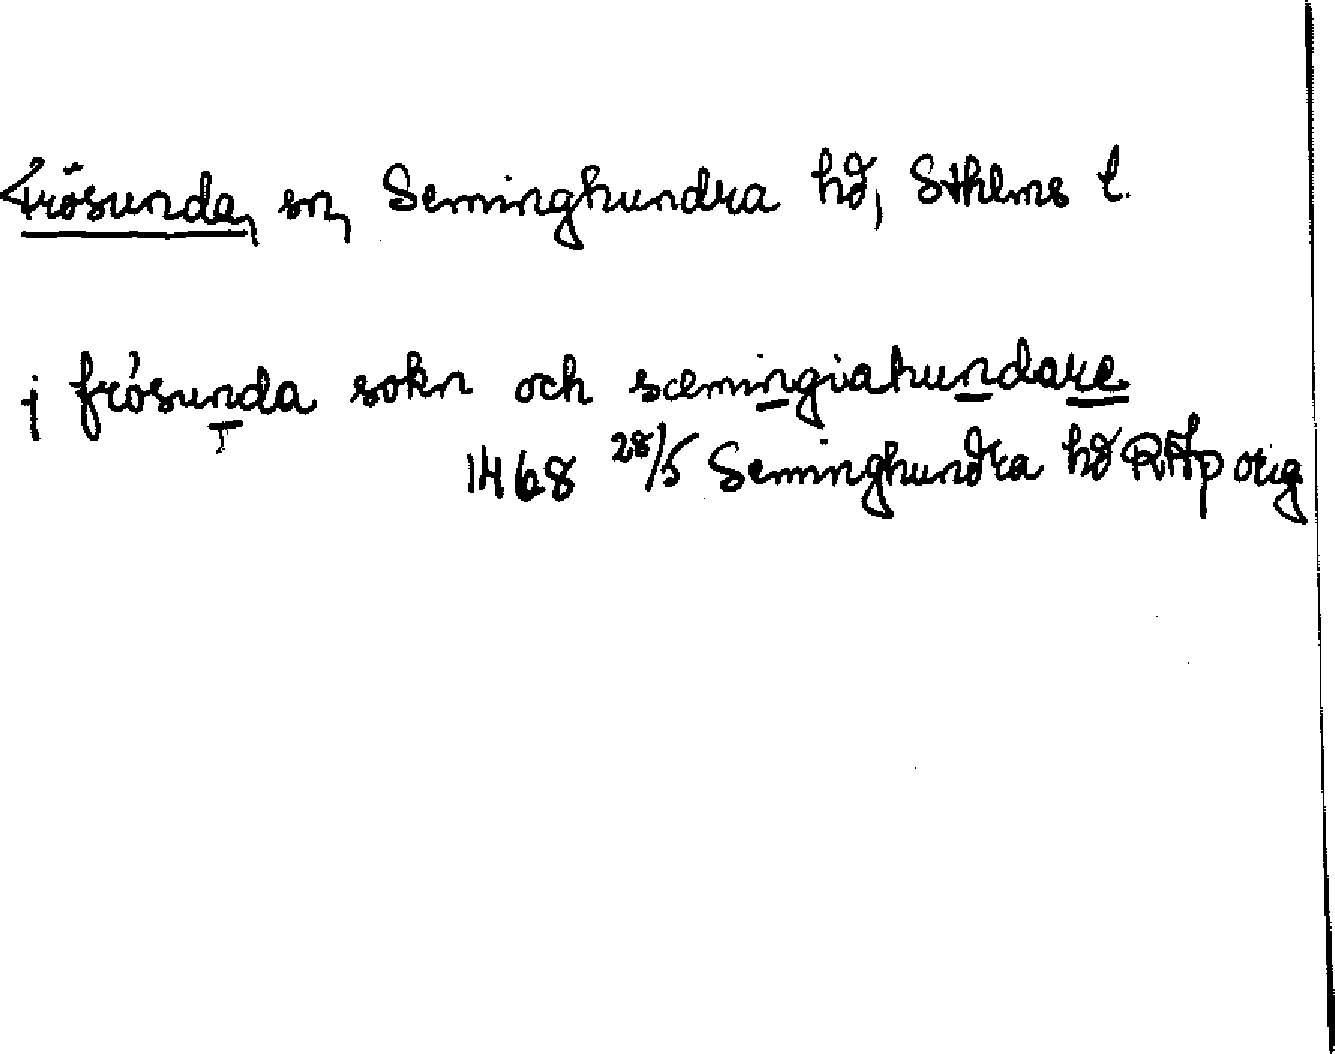 Frösunda, sn, Seminghundra hd, Sthlms l.
j frósunda sokn och sæmingiahundare
1468 28/5 Seminghundra hd RAp orig